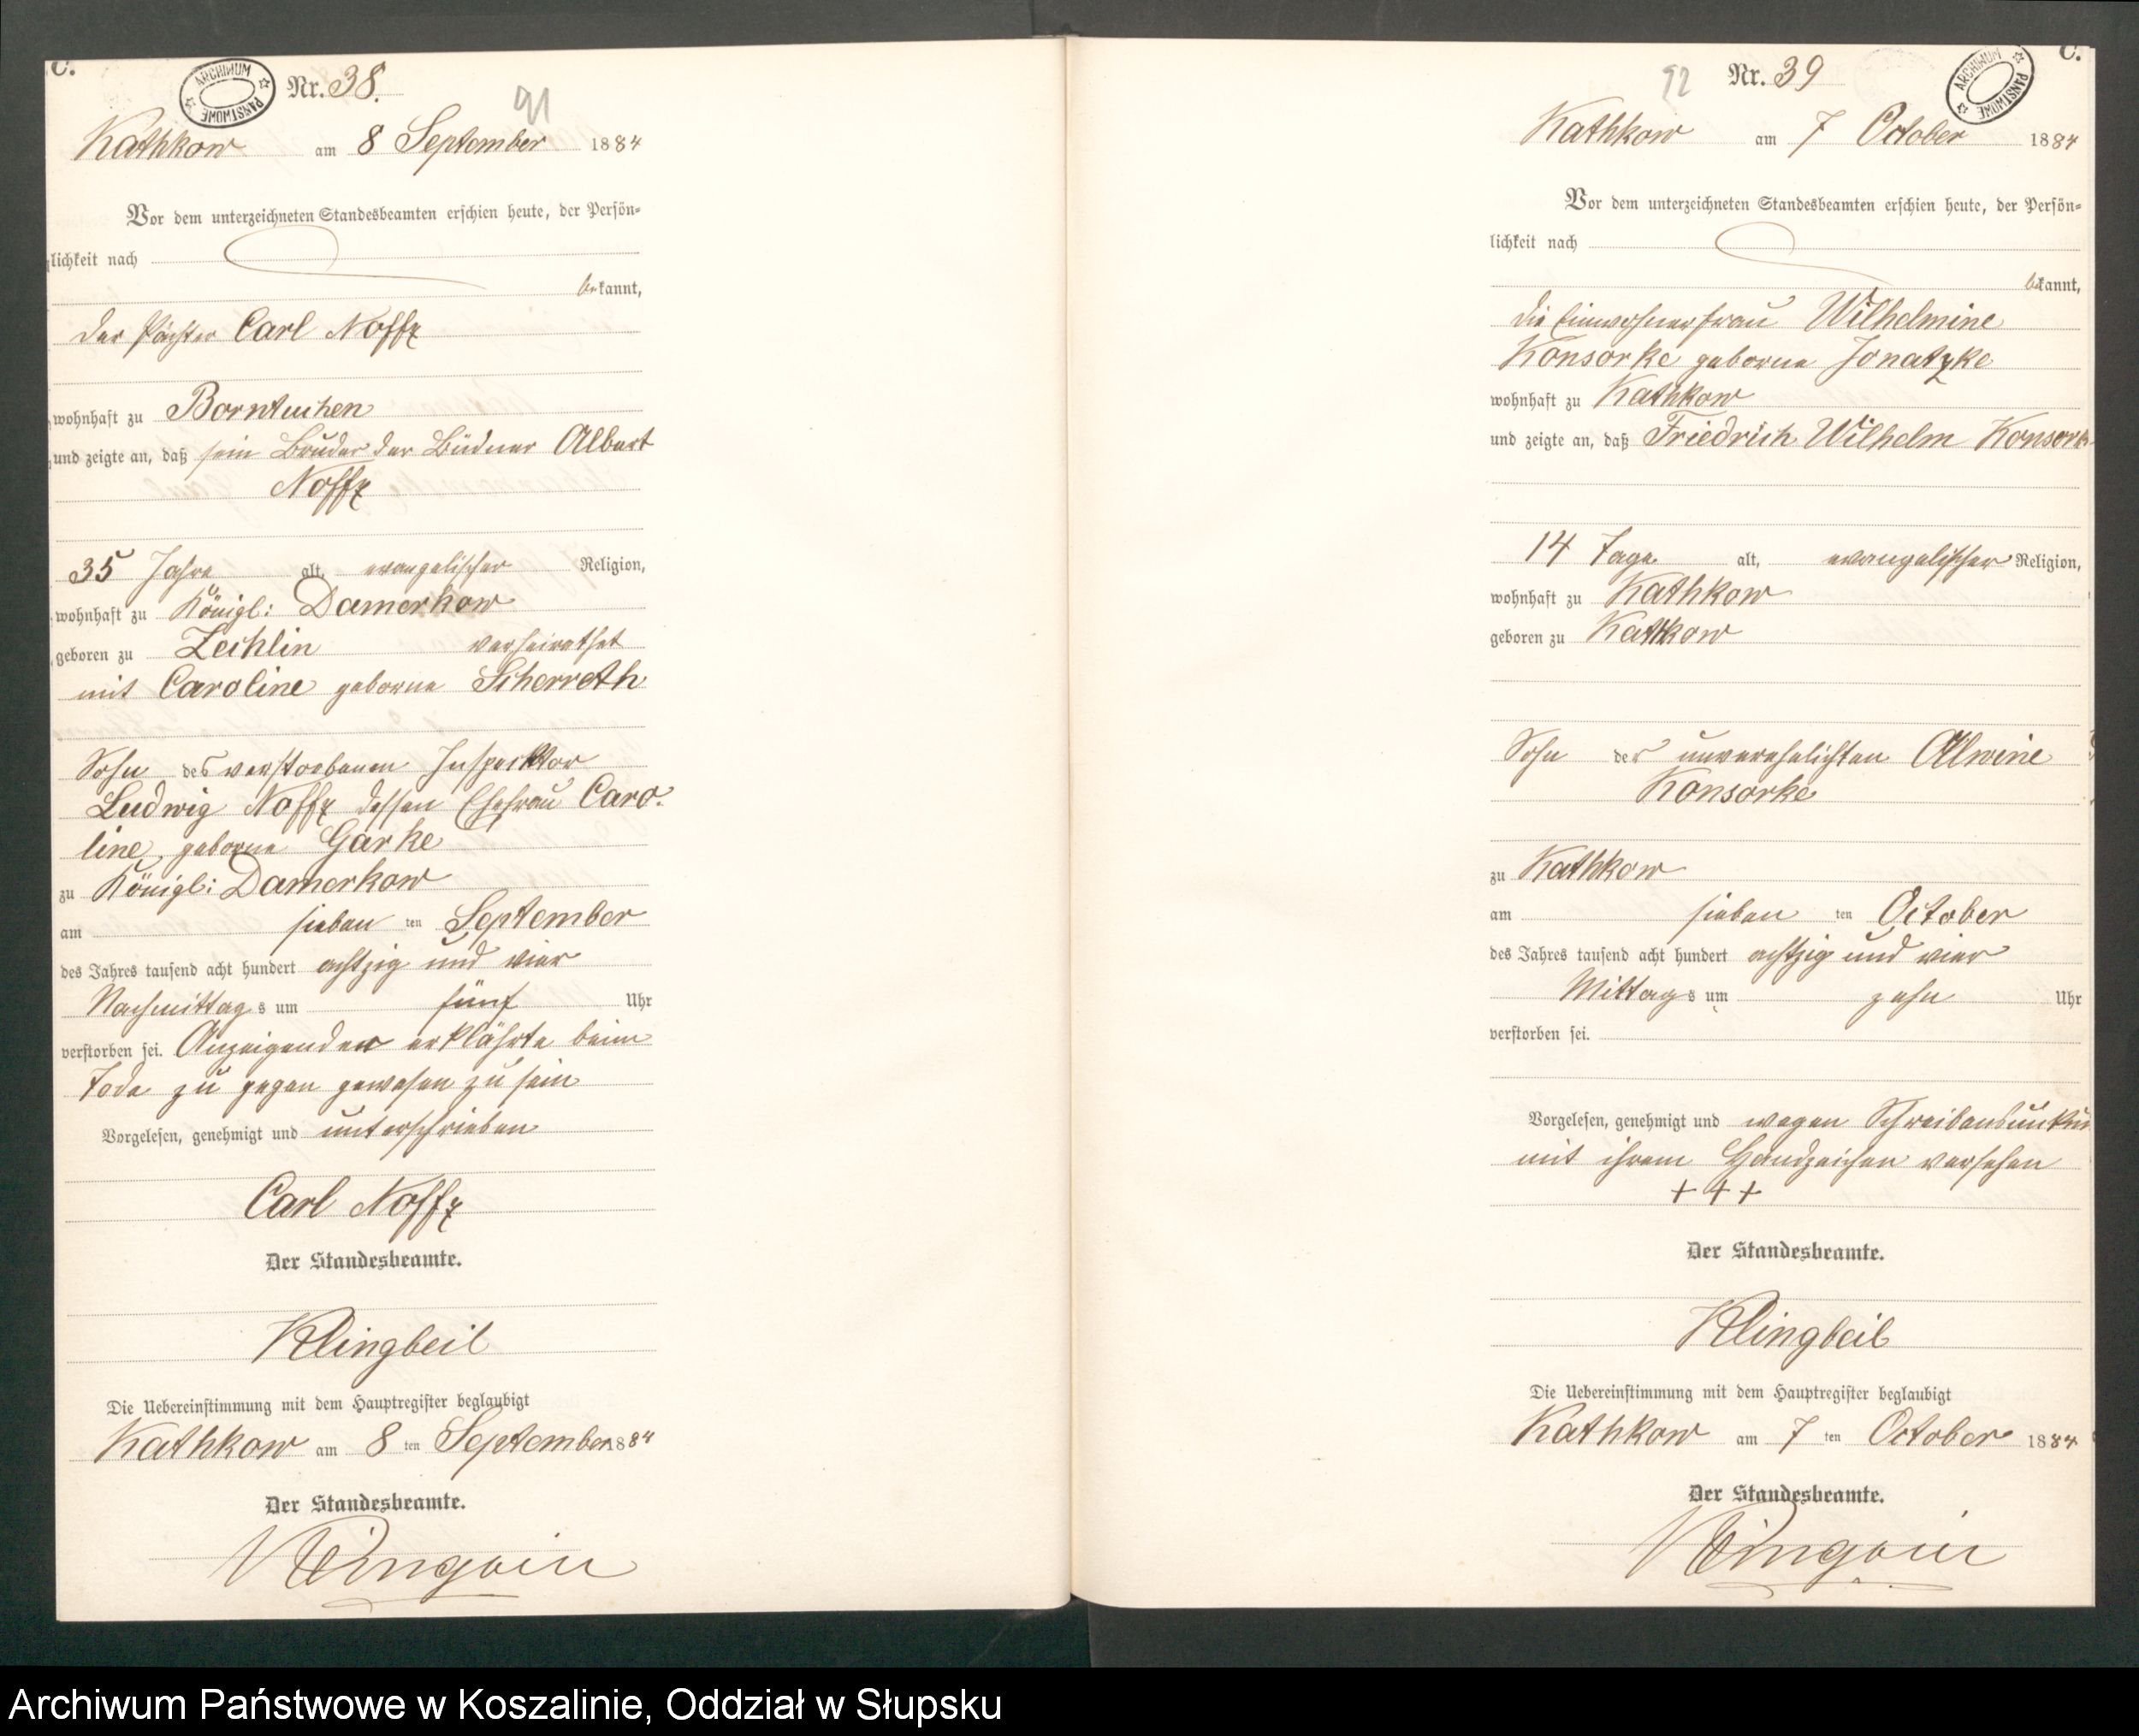 C.
ARCHIWUM PAŃSTWOWE
Nr. 38.
91
Kathkow am 8 September 1884
Vor dem unterzeichneten Standesbeamten erschien heute, der Persön-
lichkeit nach
bekannt,
der Pächter Carl Noffz
wohnhaft zu Borntuchen
und zeigte an, daß sein Bruder der Büdner Albert
Noffz
35 Jahre alt, evangelischer Religion,
wohnhaft zu Königl: Damerkow
geboren zu Zechlin verheirathet
mit Caroline geborne Scherreth
Sohn des verstorbenen Inspecktor
Ludwig Noffz dessen Ehefrau Caro-
line, geborne Garke
zu Königl: Damerkow
am sieben ten September
des Jahres tausend acht hundert achtzig und vier
Nachmittags um fünf Uhr
verstorben sei. Anzeigender erklährte beim
Tode zu gegen gewesen zu sein
Vorgelesen, genehmigt und unterschrieben
Carl Noffz
Der Standesbeamte.
Klingbeil
Die Uebereinstimmung mit dem Hauptregister beglaubigt
Kathkow am 8 ten September 1884
Der Standesbeamte.
Klingbeil
C.
ARCHIWUM PAŃSTWOWE
92
Nr. 39
Kathkow am 7 October 1884
Vor dem unterzeichneten Standesbeamten erschien heute, der Persön-
lichkeit nach
bekannt,
die Einwohnerfrau Wilhelmine
Konsorke geborne Jonatzke
wohnhaft zu Kathkow
und zeigte an, daß Friedrich Wilhelm Konsork
14 Tage alt, evangelischer Religion,
wohnhaft zu Kathkow
geboren zu Kathkow
Sohn der unverehelichten Alwine
Konsorke
zu Kathkow
am sieben ten October
des Jahres tausend acht hundert achtzig und vier
Mittags um zehn Uhr
verstorben sei.
Vorgelesen, genehmigt und wegen Schreibensunkun
mit ihrem Handzeichen versehen
+ + +
Der Standesbeamte.
Klingbeil
Die Uebereinstimmung mit dem Hauptregister beglaubigt
Kathkow am 7 ten October 1884
Der Standesbeamte.
Klingbeil
Archiwum Państwowe w Koszalinie, Oddział w Słupsku